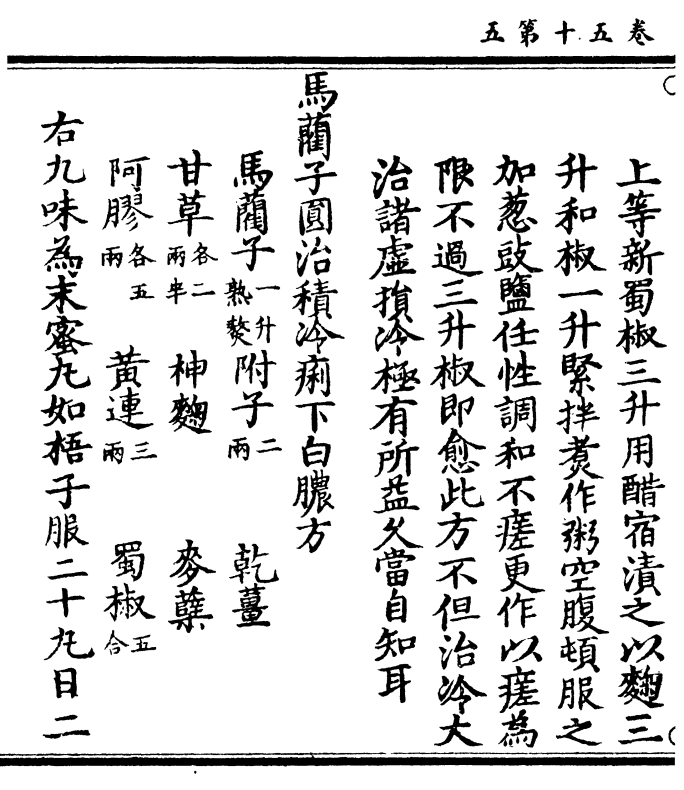 卷五十第五
上等新蜀椒三升用醋宿漬之以麴三
升和椒一升緊拌煑作粥空腹頓服之
加葱豉鹽任性調和不瘥更作以瘥為
限不過三升椒即愈此方不但治冷大
治諸虛損冷極有所益久當自知耳
馬藺子圓治積冷痢下白膿方
馬藺子一升熟熬附子二兩 乾薑
甘草各二兩半 神麴 麥蘖
阿膠各五兩 黃連三兩 蜀椒五合
右九味為末蜜丸如梧子服二十丸日二